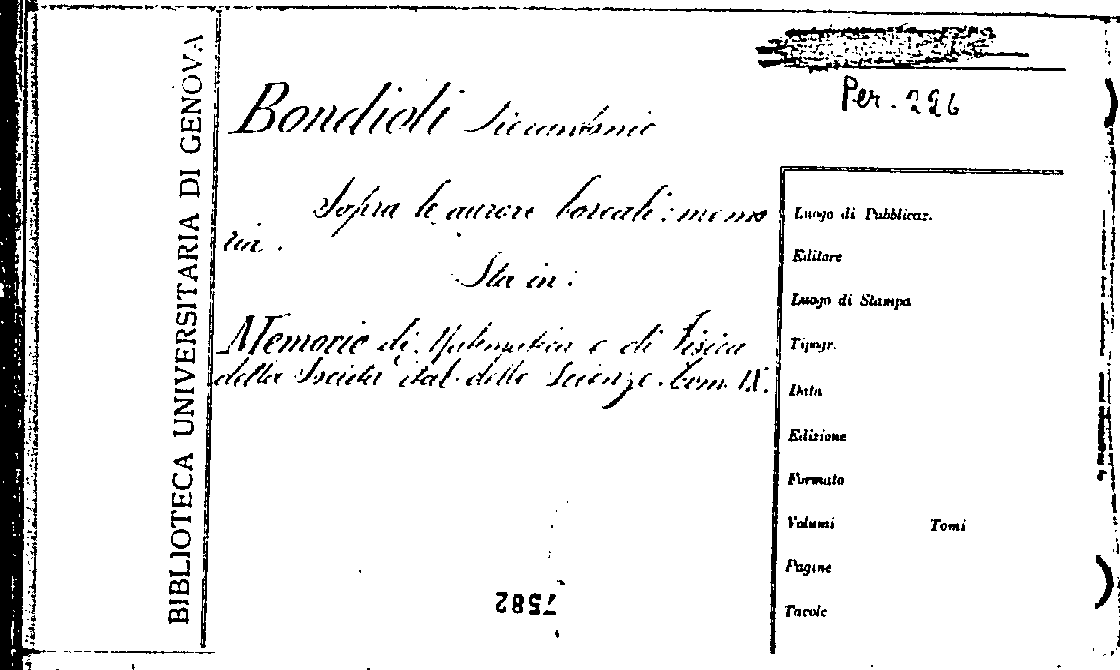 BIBLIOTECA UNIVERSITARIA DI GENOVA
Per. 226
Bondioli Pierantonio
Sopra le aurore boreali: memo
ria.
Sta in:
Memorie di Matematica e di Fisica
della Società ital. delle Scienze. tom. IX.
Luogo di Pubblicaz.
Editore
Luogo di Stampa
Tipogr.
Data
Edizione
Formato
Volumi Tomi
Pagine
Tavole
7582